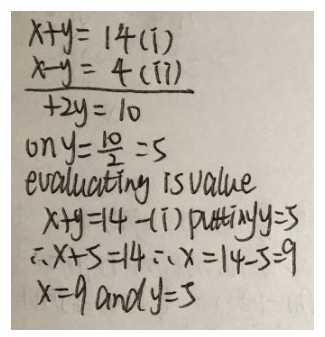 x+y= 14(i)
x-y= 4(ii)
+2y= 10
on y= 10/2 =5
evaluating is value
x+y=14 -(i) putting y=5
∴x+5=14 ∴x=14-5=9
x=9 and y=5